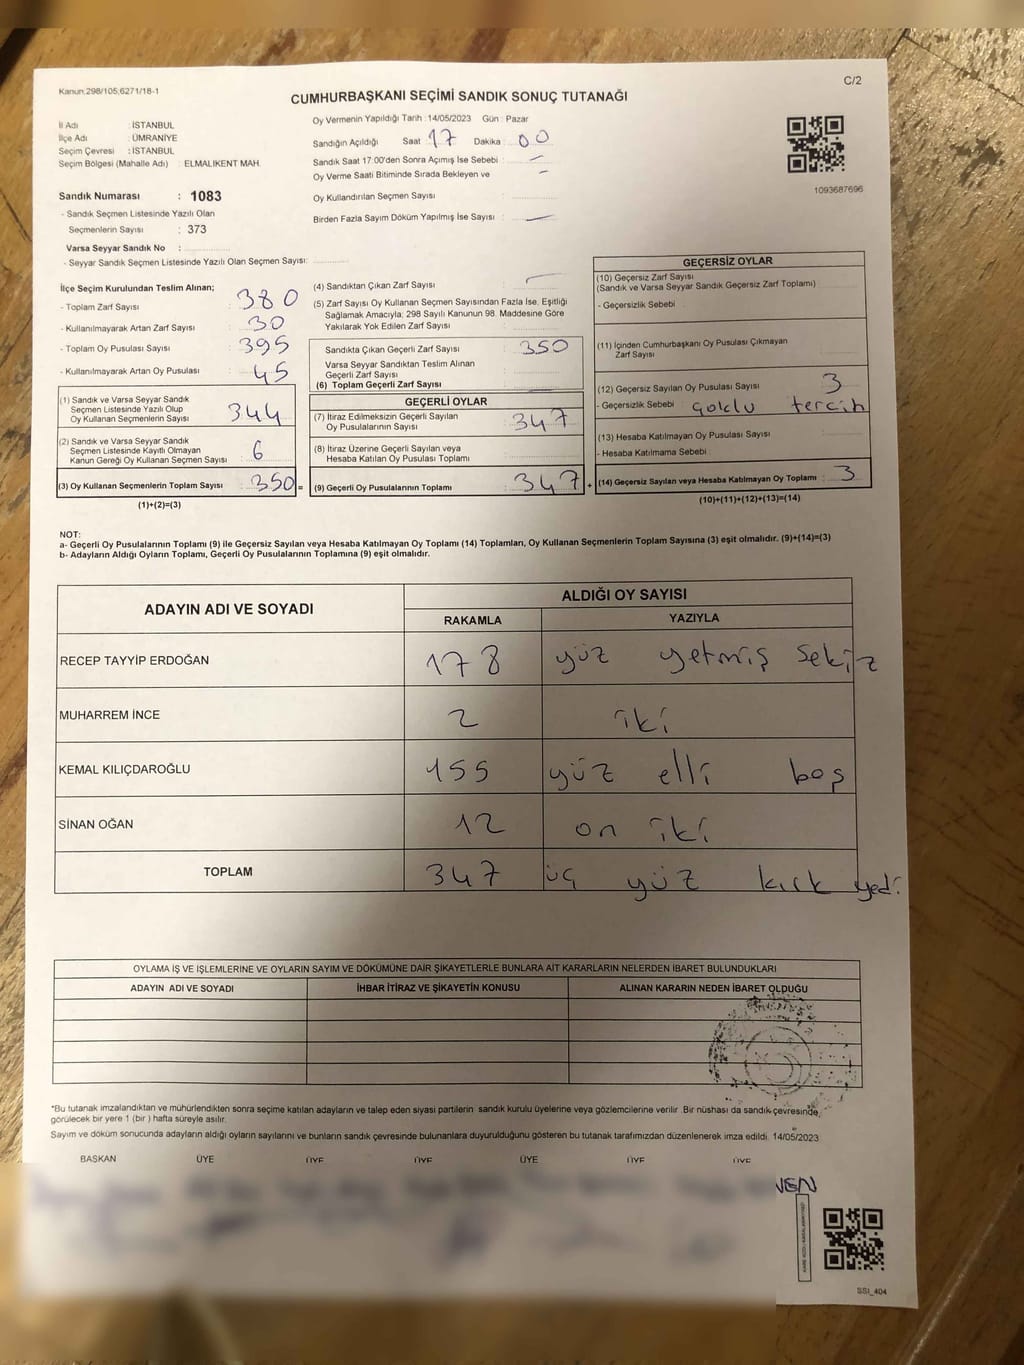 Kanun:298/105,6271/18-1
C/2
CUMHURBAŞKANI SEÇİMİ SANDIK SONUÇ TUTANAĞI
İl Adı : İSTANBUL
İlçe Adı : ÜMRANİYE
Seçim Çevresi : İSTANBUL
Seçim Bölgesi (Mahalle Adı) : ELMALIKENT MAH.
Sandık Numarası : 1083
- Sandık Seçmen Listesinde Yazılı Olan
Seçmenlerin Sayısı : 373
Varsa Seyyar Sandık No :
- Seyyar Sandık Seçmen Listesinde Yazılı Olan Seçmen Sayısı:
Oy Vermenin Yapıldığı Tarih : 14/05/2023 Gün : Pazar
Sandığın Açıldığı Saat 17 Dakika : 00
Sandık Saat 17:00'den Sonra Açımış İse Sebebi : -
Oy Verme Saati Bitiminde Sırada Bekleyen ve -
Oy Kullandırılan Seçmen Sayısı :
Birden Fazla Sayım Döküm Yapılmış İse Sayısı : -
1093687696
İlçe Seçim Kurulundan Teslim Alınan;
- Toplam Zarf Sayısı : 380
- Kullanılmayarak Artan Zarf Sayısı : 30
- Toplam Oy Pusulası Sayısı : 395
- Kullanılmayarak Artan Oy Pusulası : 45
(1) Sandık ve Varsa Seyyar Sandık
Seçmen Listesinde Yazılı Olup
Oy Kullanan Seçmenlerin Sayısı : 344
(2) Sandık ve Varsa Seyyar Sandık
Seçmen Listesinde Kayıtlı Olmayan
Kanun Gereği Oy Kullanan Seçmen Sayısı : 6
(3) Oy Kullanan Seçmenlerin Toplam Sayısı : 350 =
(1)+(2)=(3)
(4) Sandıktan Çıkan Zarf Sayısı : -
(5) Zarf Sayısı Oy Kullanan Seçmen Sayısından Fazla İse, Eşitliği
Sağlamak Amacıyla; 298 Sayılı Kanunun 98. Maddesine Göre
Yakılarak Yok Edilen Zarf Sayısı :
Sandıkta Çıkan Geçerli Zarf Sayısı : 350
Varsa Seyyar Sandıktan Teslim Alınan
Geçerli Zarf Sayısı :
(6) Toplam Geçerli Zarf Sayısı :
GEÇERLİ OYLAR
(7) İtiraz Edilmeksizin Geçerli Sayılan
Oy Pusulalarının Sayısı : 347
(8) İtiraz Üzerine Geçerli Sayılan veya
Hesaba Katılan Oy Pusulası Toplamı :
(9) Geçerli Oy Pusulalarının Toplamı : 347 +
GEÇERSİZ OYLAR
(10) Geçersiz Zarf Sayısı
(Sandık ve Varsa Seyyar Sandık Geçersiz Zarf Toplamı) :
- Geçersizlik Sebebi :
(11) İçinden Cumhurbaşkanı Oy Pusulası Çıkmayan
Zarf Sayısı :
(12) Geçersiz Sayılan Oy Pusulası Sayısı : 3
- Geçersizlik Sebebi : çoklu tercih
(13) Hesaba Katılmayan Oy Pusulası Sayısı :
- Hesaba Katılmama Sebebi :
(14) Geçersiz Sayılan veya Hesaba Katılmayan Oy Toplamı : 3
(10)+(11)+(12)+(13)=(14)
NOT:
a- Geçerli Oy Pusulalarının Toplamı (9) ile Geçersiz Sayılan veya Hesaba Katılmayan Oy Toplamı (14) Toplamları, Oy Kullanan Seçmenlerin Toplam Sayısına (3) eşit olmalıdır. (9)+(14)=(3)
b- Adayların Aldığı Oyların Toplamı, Geçerli Oy Pusulalarının Toplamına (9) eşit olmalıdır.
ADAYIN ADI VE SOYADI
ALDIĞI OY SAYISI
RAKAMLA YAZIYLA
RECEP TAYYİP ERDOĞAN 178 yüz yetmiş sekiz
MUHARREM İNCE 2 iki
KEMAL KILIÇDAROĞLU 155 yüz elli beş
SİNAN OĞAN 12 on iki
TOPLAM 347 üç yüz kırk yedi
OYLAMA İŞ VE İŞLEMLERİNE VE OYLARIN SAYIM VE DÖKÜMÜNE DAİR ŞİKAYETLERLE BUNLARA AİT KARARLARIN NELERDEN İBARET BULUNDUKLARI
ADAYIN ADI VE SOYADI İHBAR İTİRAZ VE ŞİKAYETİN KONUSU ALINAN KARARIN NEDEN İBARET OLDUĞU
*Bu tutanak imzalandıktan ve mühürlendikten sonra seçime katılan adayların ve talep eden siyasi partilerin sandık kurulu üyelerine veya gözlemcilerine verilir. Bir nüshası da sandık çevresinde,
görülecek bir yere 1 (bir) hafta süreyle asılır.
Sayım ve döküm sonucunda adayların aldığı oyların sayılarını ve bunların sandık çevresinde bulunanlara duyurulduğunu gösteren bu tutanak tarafımızdan düzenlenerek imza edildi. 14/05/2023
BAŞKAN ÜYE ÜYE ÜYE ÜYE ÜYE ÜYE
VEN
SSI_404